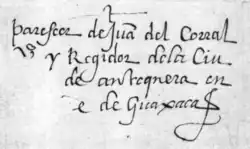 parescer de Juan del Corral
y Regidor dela Ciu
de anteqnera en
e de Guaxaca